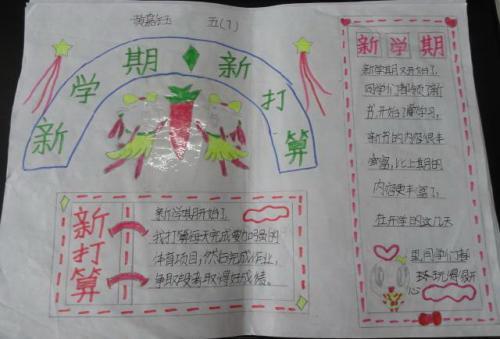 黄嘉钰 五(1)
新学期新打算
新打算
新学期开始了
我打算每天完成要加强的
体育项目,然后完成作业,
争取段考取得好成绩。
新学期
新学期又开始了,
同学们都领新
书,开始了学习,
新书的内容很丰
富,比上期的
内容更丰富了,
在开学的这几天
里,同学们都
玩得很开
心